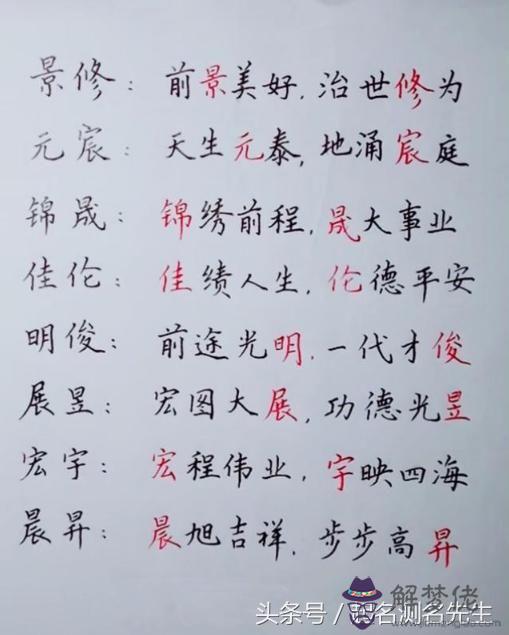 景修：前景美好，治世修为
元宸：天生元泰，地涌宸庭
锦晟：锦绣前程，晟大事业
佳伦：佳绩人生，伦德平安
明俊：前途光明．一代才俊
展昱：宏图大展，功德光昱
宏宇：宏程伟业，宇映四海
晨昇：晨旭吉祥，步步高昇
解梦佬
头条号／识名测名先生